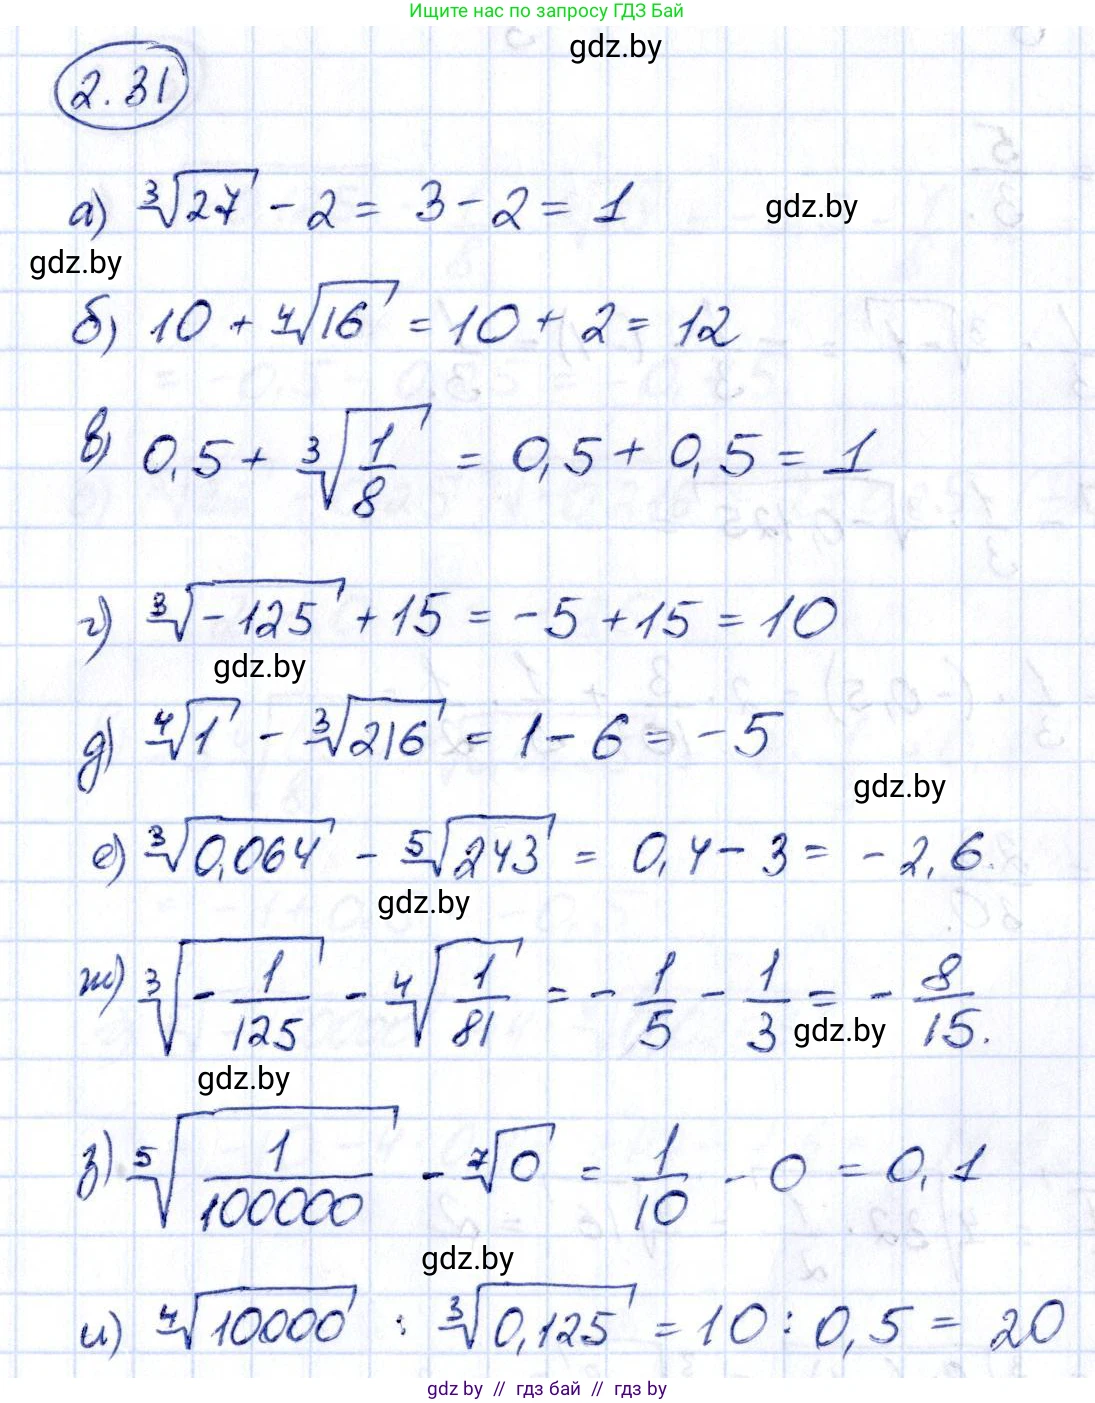 Ищите нас по запросу ГДЗ Бай
gdz.by
2.31
а) ∛27 - 2 = 3 - 2 = 1
gdz.by
gdz.by
б) 10 + ∜16 = 10 + 2 = 12
в) 0,5 + ∛(1/8) = 0,5 + 0,5 = 1
г) ∛(-125) + 15 = -5 + 15 = 10
gdz.by
д) ∜1 - ∛216 = 1 - 6 = -5
gdz.by
е) ∛0,064 - ⁵√243 = 0,4 - 3 = -2,6.
gdz.by
ж) ∛(-1/125) - ∜(1/81) = -1/5 - 1/3 = -8/15.
gdz.by
gdz.by
з) ⁵√(1/100000) - ⁷√0 = 1/10 - 0 = 0,1
gdz.by
и) ∜10000 : ∛0,125 = 10 : 0,5 = 20
gdz by // гдз бай // гдз by